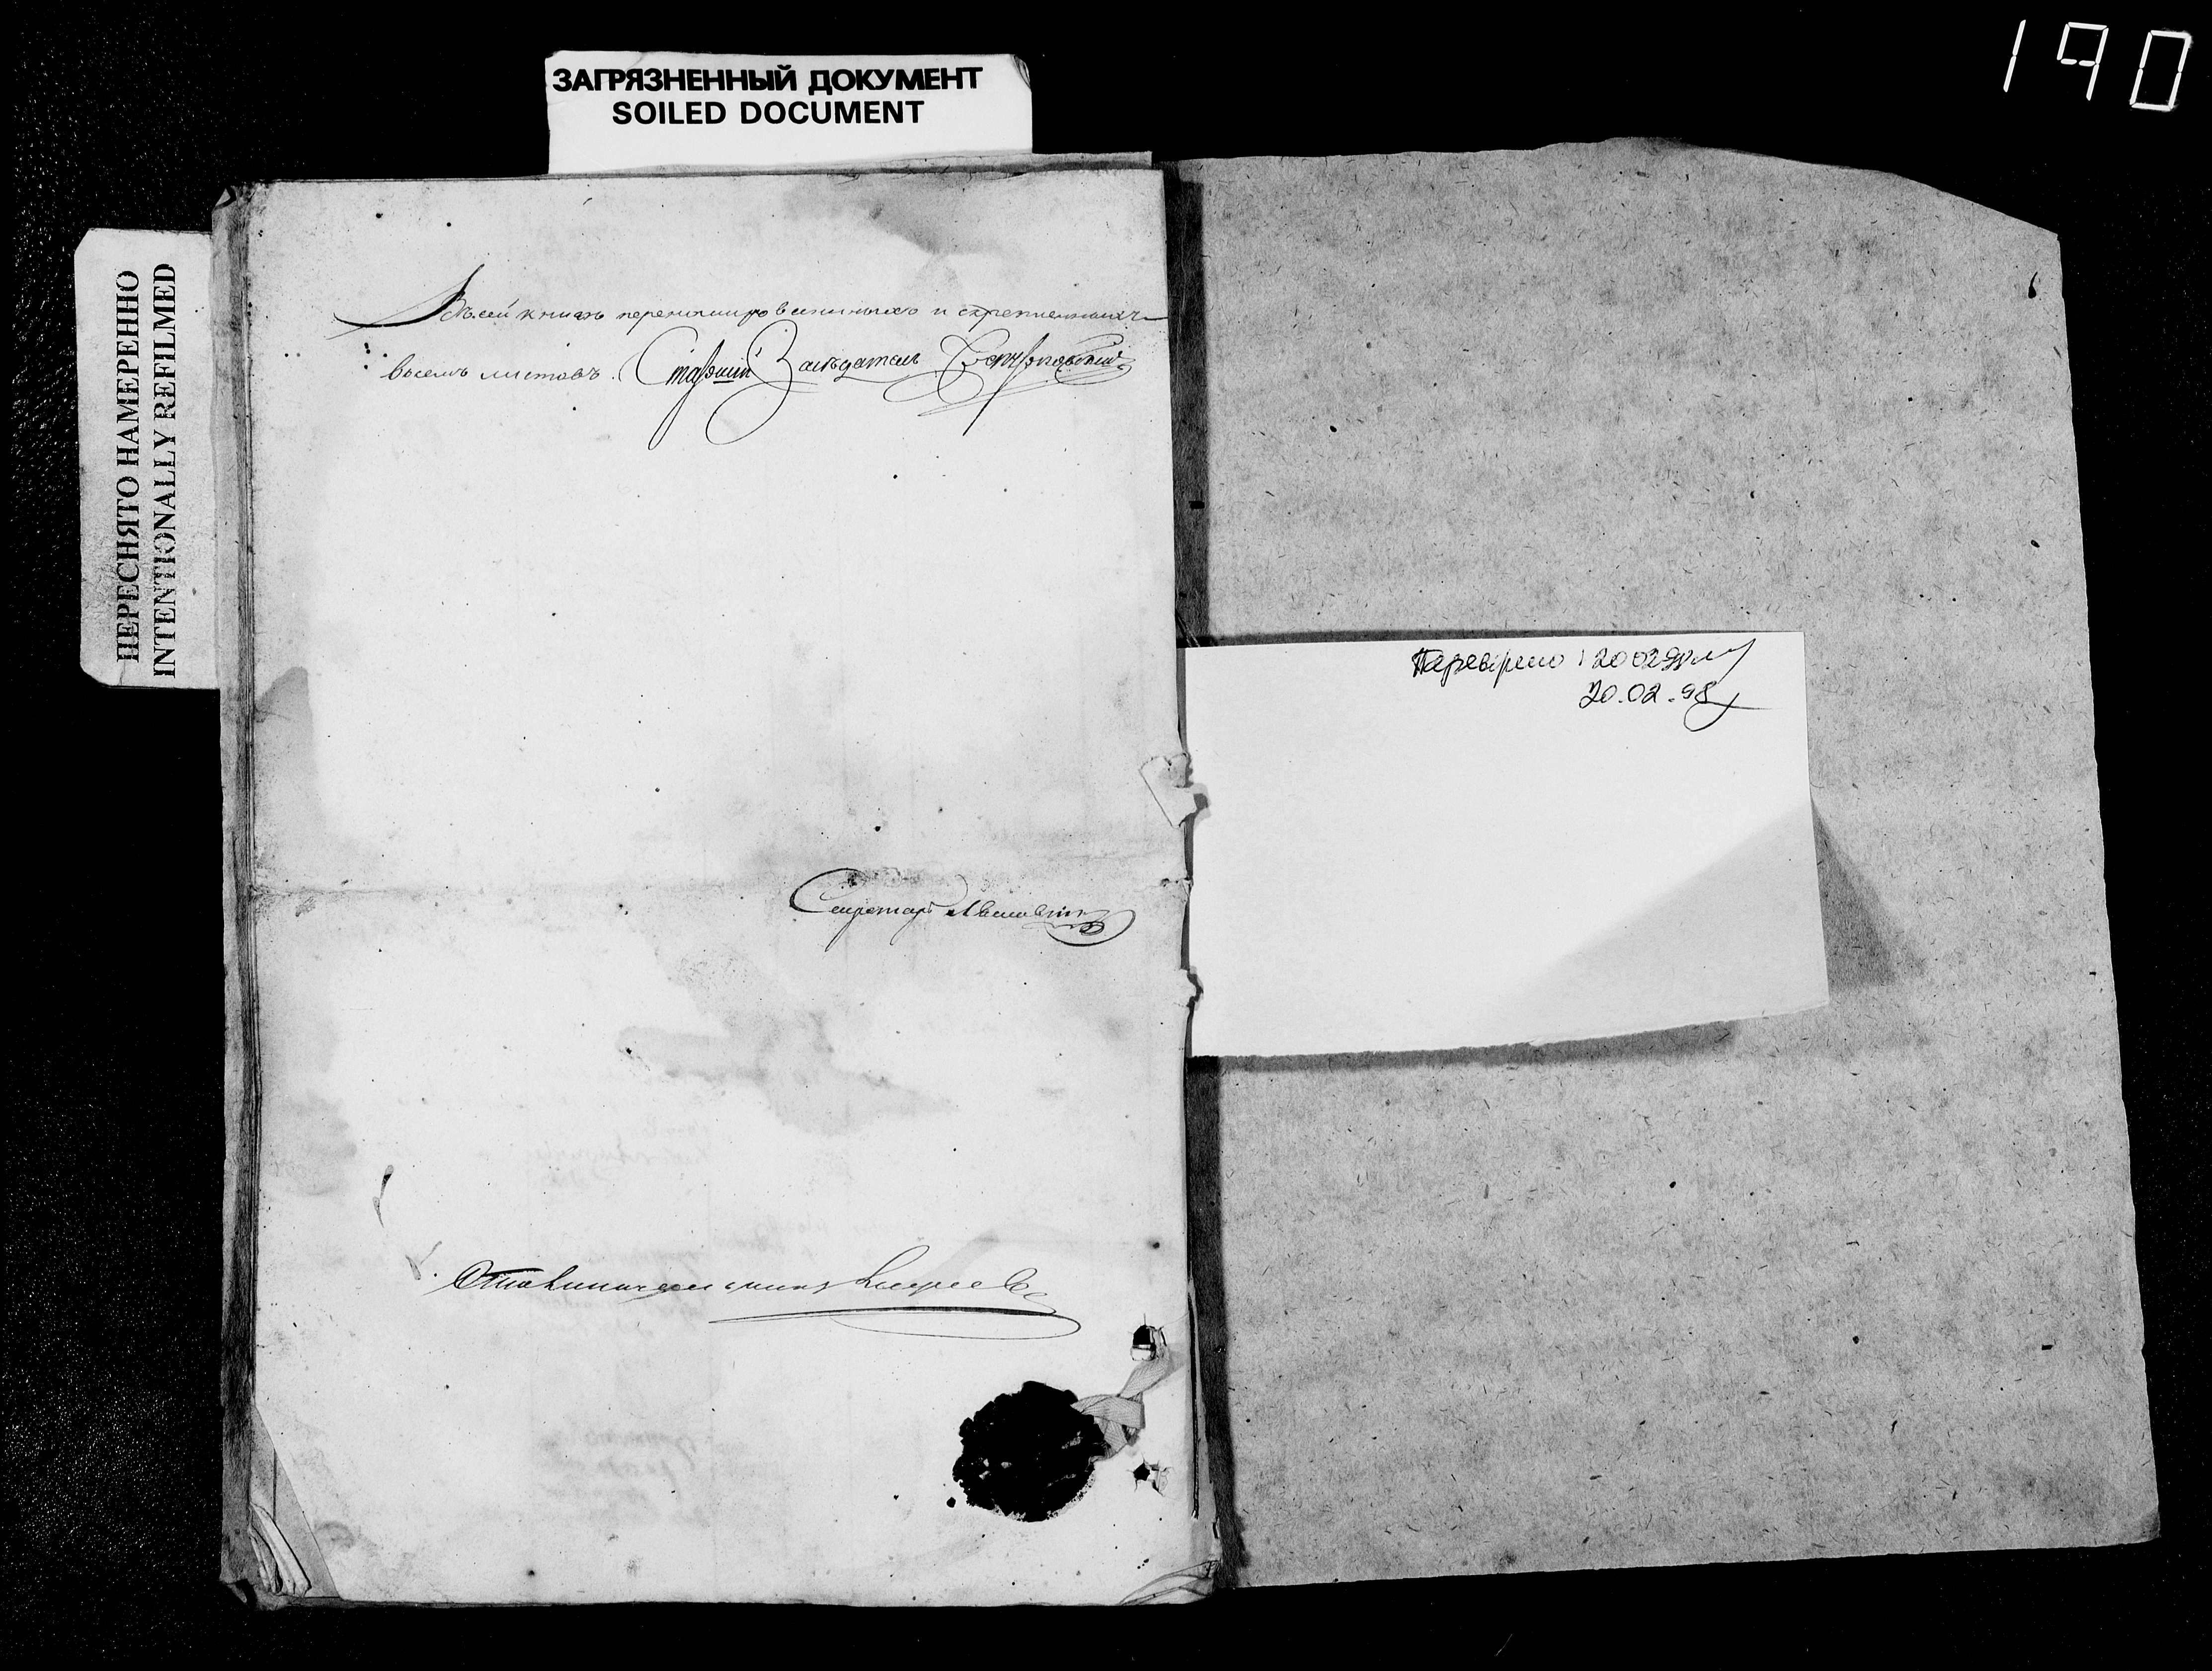 190
ЗАГРЯЗНЕННЫЙ ДОКУМЕНТ
SOILED DOCUMENT
ПЕРЕСНЯТО НАМЕРЕННО
INTENTIONALLY REFILMED
Въ сей книгѣ перенумерованныхъ и скрепленныхъ
восемь листовъ. Старший Заседатель
Секретарь
Столоначальникъ Киреевъ
Перевірено
20.02.98